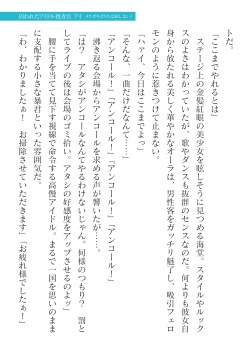 囚われたアイドル捜査官 アイ
トだ。
「ここまでやれるとは」
ステージ上の金髪紅眼の美少女を眩しそうに見つめる海堂。スタイルやルック
スのよさはわかっていたが、歌やダンスも抜群のセンスなのだ。何よりも彼女自
身から放たれる美しく華やかなオーラは、男性客をガッチリ魅了し、吸引フェロ
モンのように惹きつけて止まない。
「ハァイ、今日はここまでよっ」
「そんな、一曲だけなんて……」
「アンコール！」「アンコール！」「アンコール！」
沸き返る会場からアンコールを求める声が響いたが……。
「は？　アタシがアンコールなんてやるわけないじゃん。何様のつもり？　罰と
してライブの後は会場のゴミ拾い。アタシの好感度をアップさせるのよッ」
腰に手を当てて見下す視線で命令する高慢アイドル。まるで一国を思いのまま
に支配する小さな暴君といった雰囲気だ。
「わ、わかりましたぁ！　お掃除させていただきます」「お疲れ様でしたぁ！」